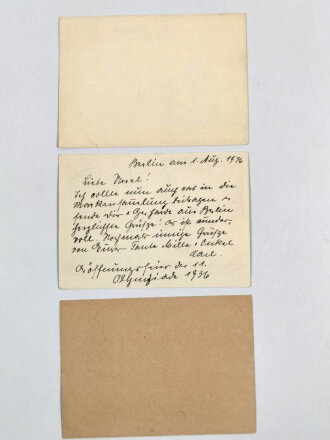 Berlin am 1. Aug. 1936
Liebe Ursel!
Ich wollte nun auch was in die
Markensammlung beitragen u.
sende Dir u. Gerharde aus Berlin
herzlichste Grüße! Es ist wunder-
voll. Nochmals innige Grüße
von Eurer Tante Mille u. Onkel
Carl.
Eröffnungsfeier der 11.
Olympiade 1936